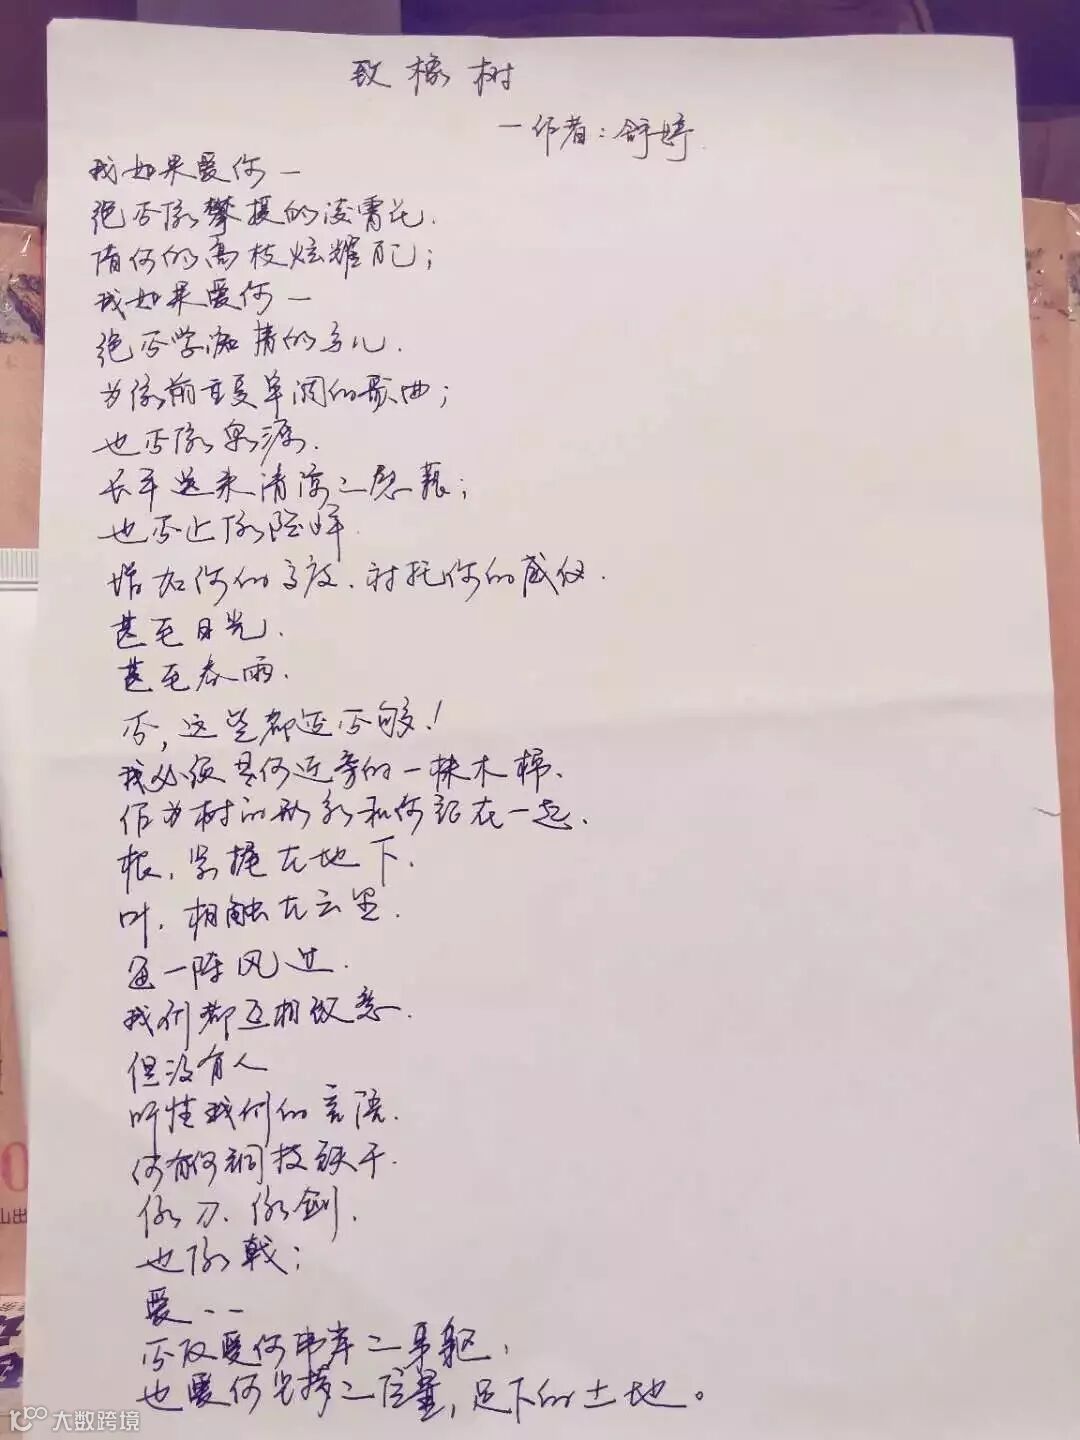 致橡树
一作者：舒婷.
我如果爱你一
绝不像攀援的凌霄花.
借你的高枝炫耀自己；
我如果爱你一
绝不学痴情的鸟儿.
为绿荫重复单调的歌曲；
也不像泉源.
长年送来清凉的慰藉；
也不止像险峰
增加你的高度.衬托你的威仪.
甚至日光.
甚至春雨.
不,这些都还不够!
我必须是你近旁的一株木棉.
作为树的形象和你站在一起.
根.紧握在地下.
叶.相触在云里.
每一阵风过.
我们都互相致意.
但没有人
听懂我们的言语.
你有你铜枝铁干.
像刀.像剑.
也像戟；
爱--
不仅爱你伟岸的身躯,
也爱你坚持的位置,足下的土地。
山出
大数跨境